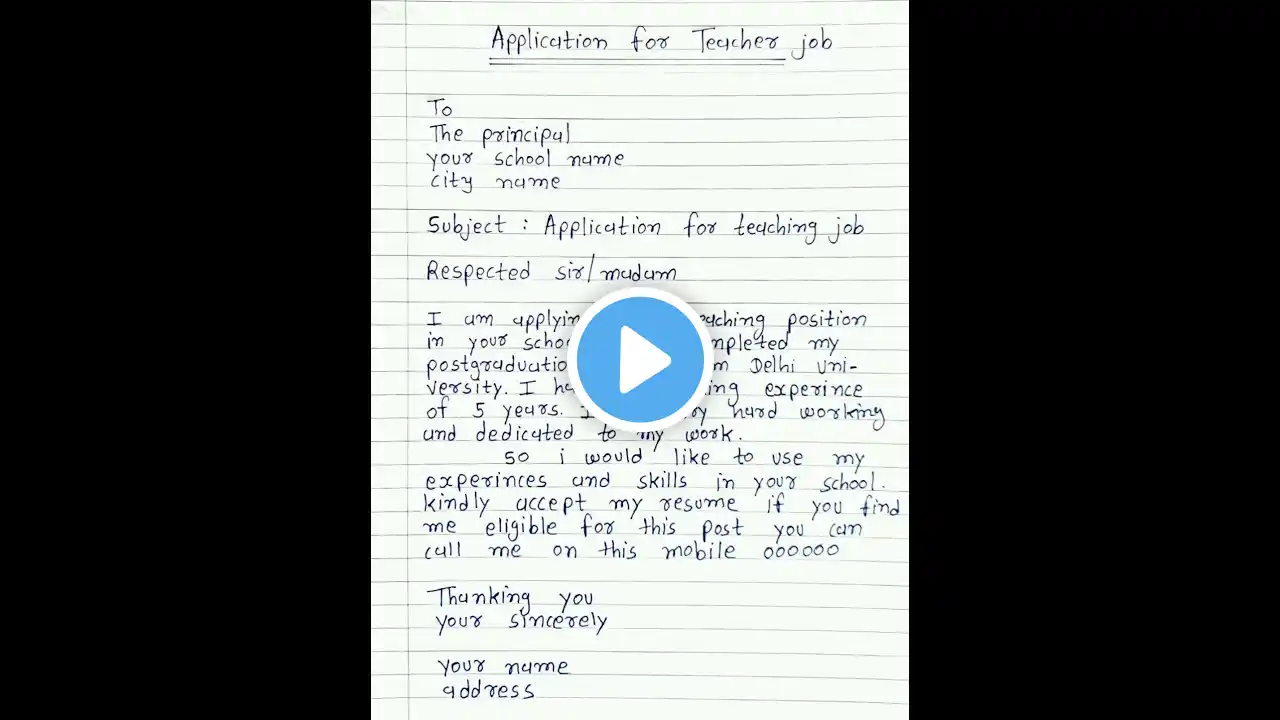 Application for Teacher job
To
The principal
your school name
city name
Subject : Application for teaching job
Respected sir/madam
I am position
in your my
Delhi uni-
versity. I experince
of 5 years. hard working
and dedicated to my work.
So i would like to use my
experinces and skills in your school.
kindly accept my resume if you find
me eligible for this post you can
call me on this mobile 000000
Thanking you
your sincerely
your name
address